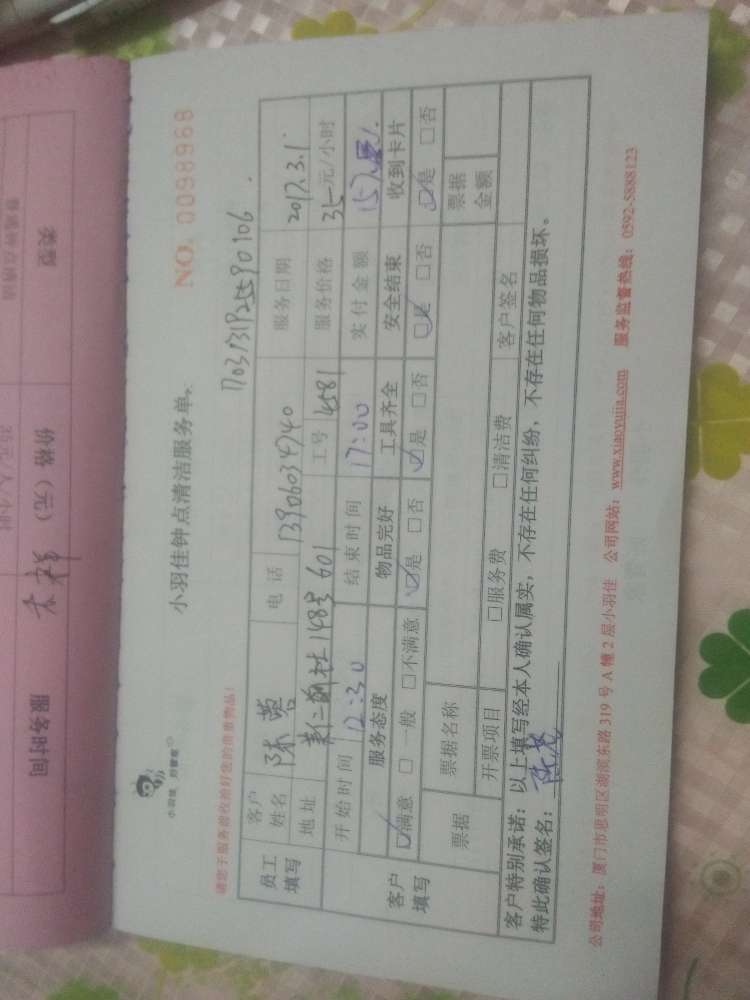 小羽佳 好管家
小羽佳钟点清洁服务单
NO. 0098968
请您于服务前收拾好您的贵重物品!
员工填写 客户姓名 陈 电话 13906034740 服务日期 2017.3.1
地址 148号601 工号 4581 服务价格 35元/小时
开始时间 12:30 结束时间 17:00 实付金额
客户填写 服务态度 物品完好 工具齐全 安全结束 收到卡片
☑满意 □一般 □不满意 ☑是 □否 ☑是 □否 ☑是 □否 ☑是 □否
票据 票据名称 票据金额
开票项目 □服务费 □清洁费 客户签名
客户特别承诺:以上填写经本人确认属实,不存在任何纠纷,不存在任何物品损坏。
特此确认签名:
公司地址:厦门市思明区湖滨东路 319 号 A 幢 2 层小羽佳 公司网站:www.xiaoyujia.com 服务监督热线:0592-5888123
类型 价格(元) 服务时间